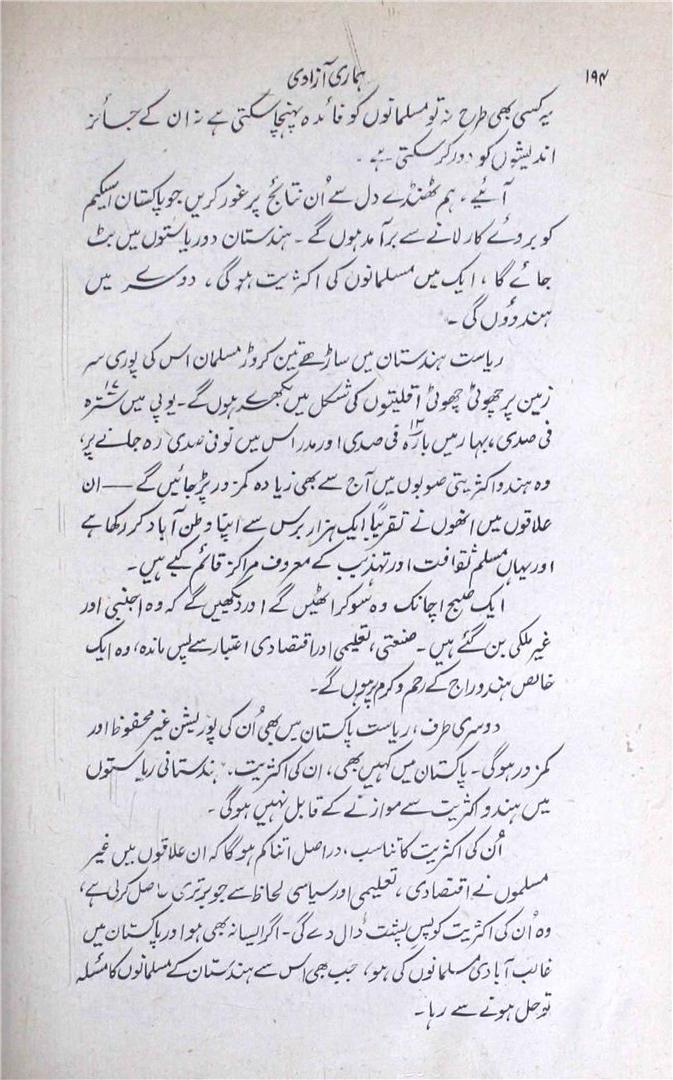 ۱۹۴ ہماری آزادی
یہ کسی بھی طرح نہ تو مسلمانوں کو فائدہ پہنچا سکتی ہے نہ ان کے جائز
اندیشوں کو دور کر سکتی ہے۔
آئیے، ہم ٹھنڈے دل سے اُن نتائج پر غور کریں جو پاکستان اسکیم
کو بروئے کار لانے سے برآمد ہوں گے۔ ہندستان دو ریاستوں میں بٹ
جائے گا، ایک میں مسلمانوں کی اکثریت ہو گی، دوسرے میں
ہندوؤں کی۔
ریاست ہندستان میں ساڑھے تین کروڑ مسلمان اس کی پوری سر
زمین پر چھوٹی چھوٹی اقلیتوں کی شکل میں بکھرے ہوں گے۔ یوپی میں سترہ ۱۷
فی صدی، بہار میں بارہ ۱۲ فی صدی اور مدراس میں نو فی صدی رہ جانے پر،
وہ ہندو اکثریتی صوبوں میں آج سے بھی زیادہ کمزور پڑ جائیں گے — ان
علاقوں میں انھوں نے تقریباً ایک ہزار برس سے اپنا وطن آباد کر رکھا ہے
اور یہاں مسلم ثقافت اور تہذیب کے معروف مراکز قائم کیے ہیں۔
ایک صبح اچانک وہ سو کر اٹھیں گے اور دیکھیں گے کہ وہ اجنبی اور
غیر ملکی بن گئے ہیں۔ صنعتی، تعلیمی اور اقتصادی اعتبار سے پس ماندہ، وہ ایک
خالص ہندو راج کے رحم و کرم پر ہوں گے۔
دوسری طرف، ریاست پاکستان میں بھی اُن کی پوزیشن غیر محفوظ اور
کمزور ہوگی۔ پاکستان میں کہیں بھی، ان کی اکثریت، ہندستانی ریاستوں
میں ہندو اکثریت سے موازنے کے قابل نہیں ہوگی۔
اُن کی اکثریت کا تناسب، دراصل اتنا کم ہو گا کہ ان علاقوں میں غیر
مسلموں نے اقتصادی، تعلیمی اور سیاسی لحاظ سے جو برتری حاصل کر لی ہے،
وہ اُن کی اکثریت کو پسِ پشت ڈال دے گی۔ اگر ایسا نہ بھی ہو اور پاکستان میں
غالب آبادی مسلمانوں کی ہو، جب بھی اس سے ہندستان کے مسلمانوں کا مسئلہ
تو حل ہونے سے رہا۔